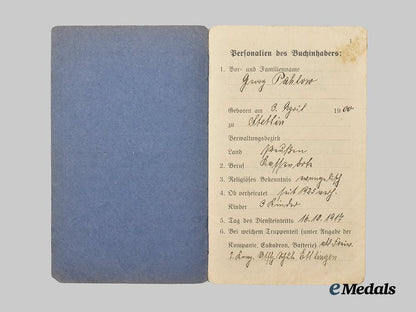 1
Personalien des Buchinhabers:
1. Vor- und Familienname
Georg
Geboren am 3. April 1900
zu Stettin
Verwaltungsbezirk
Land Preußen
2. Beruf Kassenbote
3. Religiöses Bekenntnis evangelisch
4. Ob verheiratet seit 1925 wech.
Kinder 3 Kinder
5. Tag des Diensteintritts 16.10.1917
6. Bei welchem Truppenteil (unter Angabe der
Kompanie, Eskadron, Batterie) als Freiw.
Ettlingen
eMedals